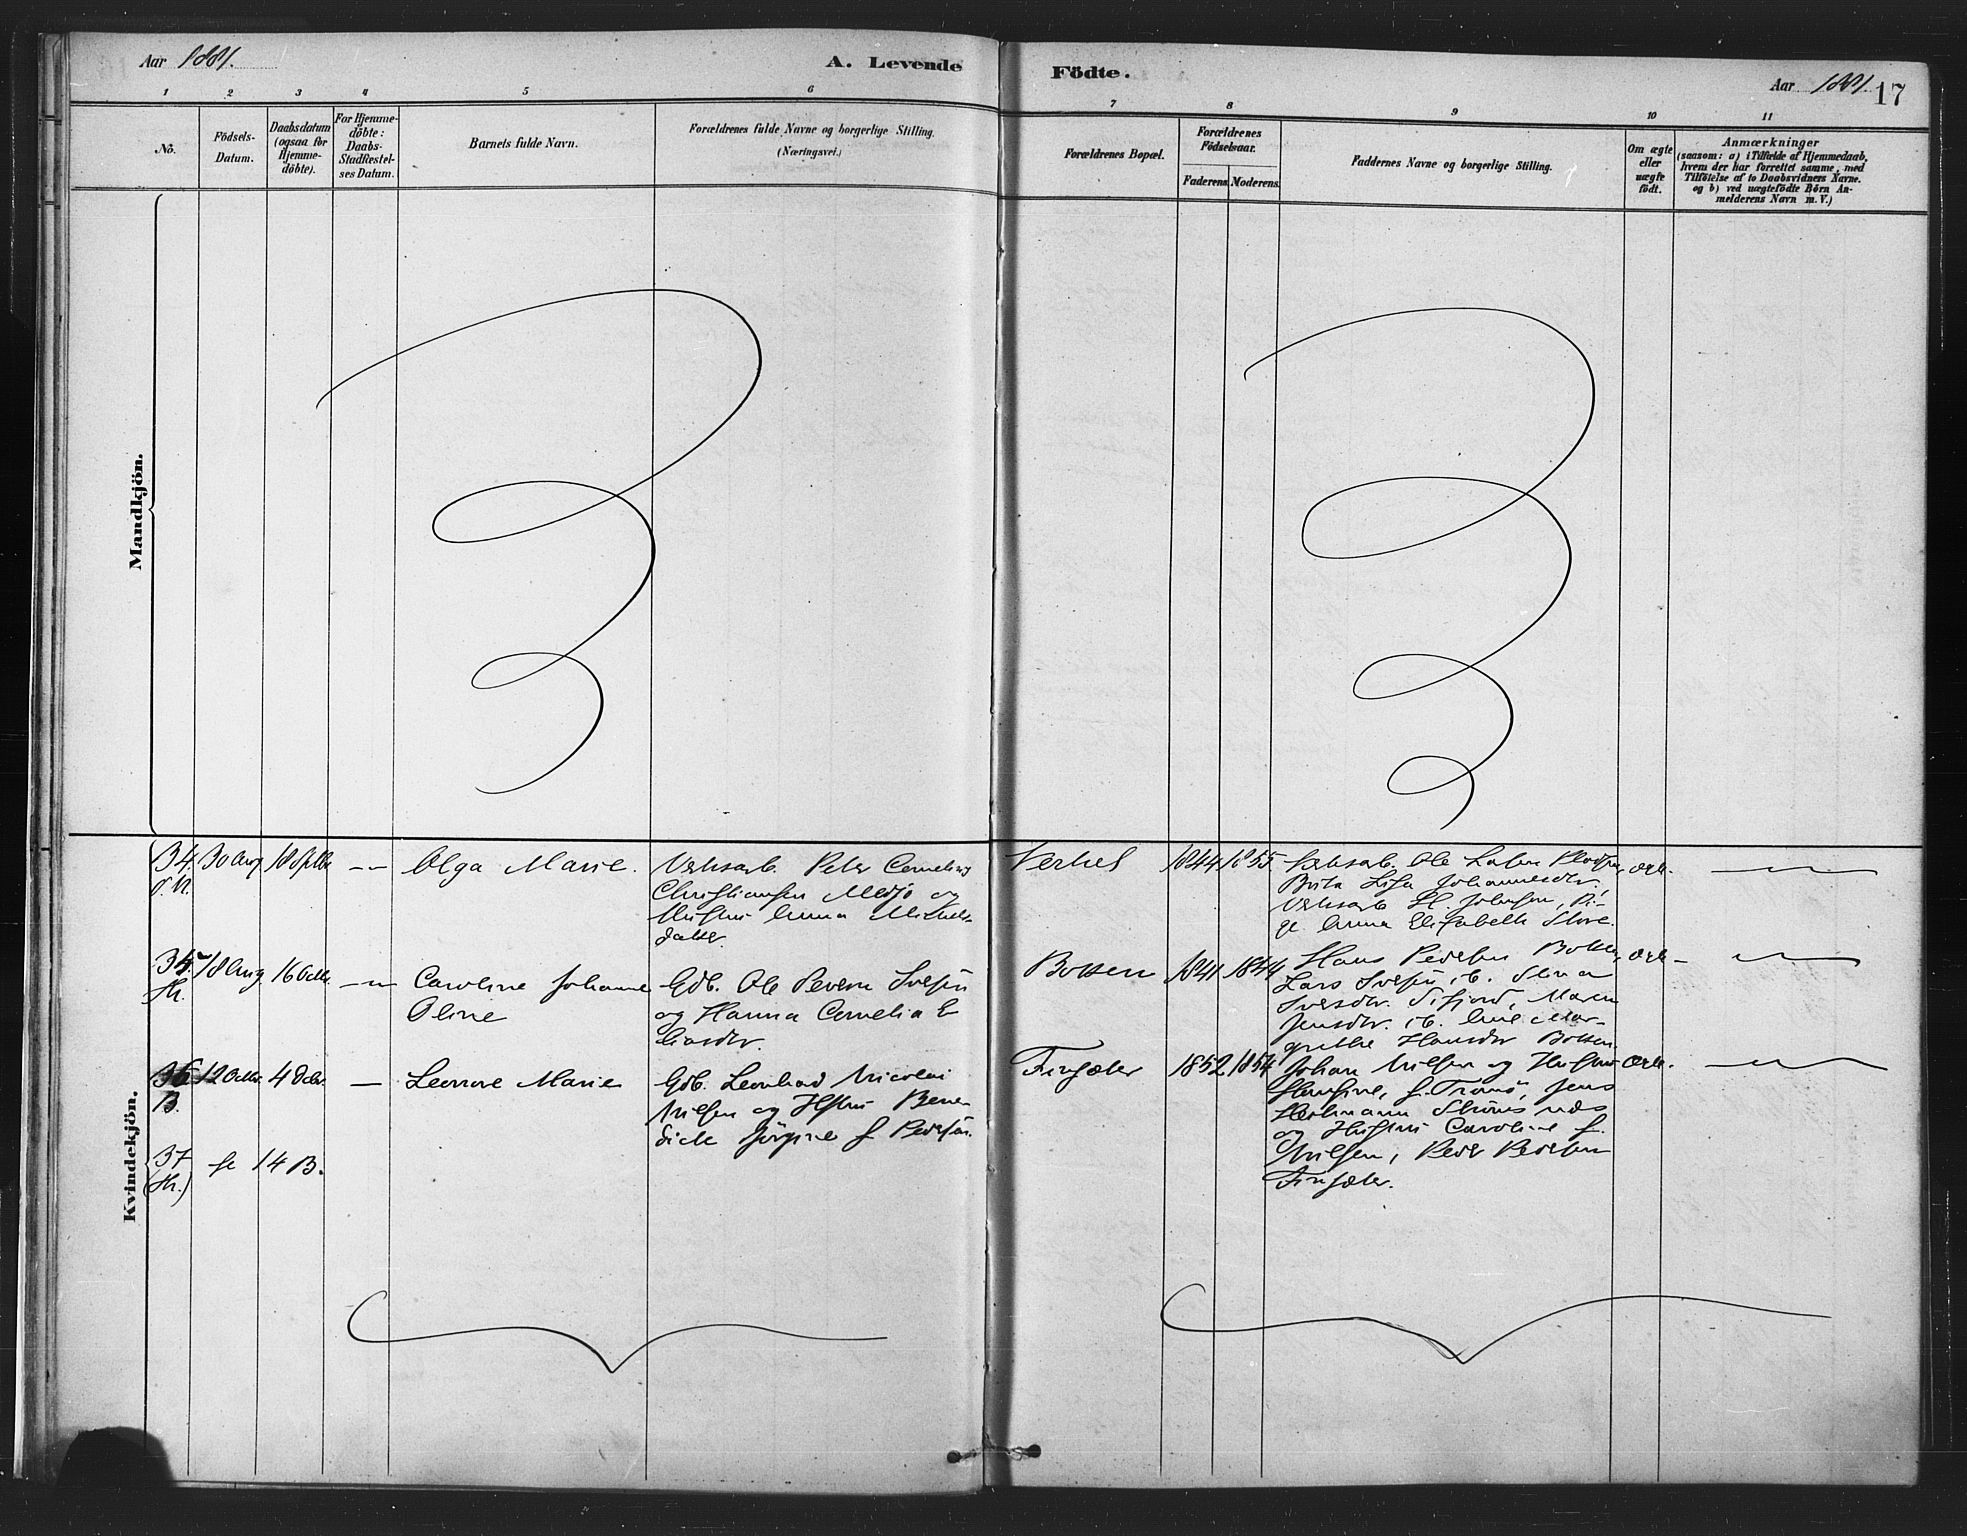 Aar 1881.
A. Levende
Födte.
Aar 1881.
17
1 2 3 4 5 6
7 8 9 10 11
No.
Födsels-
Datum.
Daabsdatum
(ogsaa for
Hjemme-
döbte).
For Hjemme-
döbte:
Daabs-
Stadfæstel-
ses Datum.
Barnets fulde Navn.
Forældrenes fulde Navne og borgerlige Stilling.
(Næringsvei.)
Forældrenes Bopæl.
Forældrenes
Födselsaar.
Faderens. Moderens.
Faddernes Navne og borgerlige Stilling.
Om ægte
eller
uægte
födt.
Anmærkninger
(saasom: a) i Tilfælde af Hjemmedaab,
hvem der har forrettet samme, med
Tilföielse af to Daabsvidners Navne.
og b) ved uægtefödte Börn An-
melderens Navn m. V.)
Mandkjön.
Kvindekjön.
34.
30 Aug
18 Septbr
Olga Marie.
Verksarb. Peter Cornelius
Christiansen Medjo og
Hustru Anna Michels-
datter.
1844
1855.
Verksarb. Ole Larsen
Brita Lisa Johannesdtr.,
Verksarb. H. Johnsen, Pi-
ge Anna Elisabeth
Ægte.
35.
18 Aug.
16 Octbr.
Caroline Johanne
Oline
Gdb. Ole Pedersen
og Hanna Cornelia E-
liasdtr.
Botten
1841
1844
Hans Pedersen Botten,
Lars
Sifjord, Maren
Jensdtr. ib. Ane Mar-
grethe Hansdtr Botten.
Ægte
36
B.
12 Octbr.
4 Decbr.
Leonore Marie
Gdb. Leonhard Nicolai
Nilsen og Hustru Bene-
dicte Jörgine f. Pedersen.
Finsæter
1852
1854
Johan Nilsen og Hustru
Hansine, f. Tromsö, Jens
Hartmann Strömsnæs
og Hustru Caroline f.
Nilsen, Peder Pedersen
Finsæter.
Ægte.
37
se 14 B.